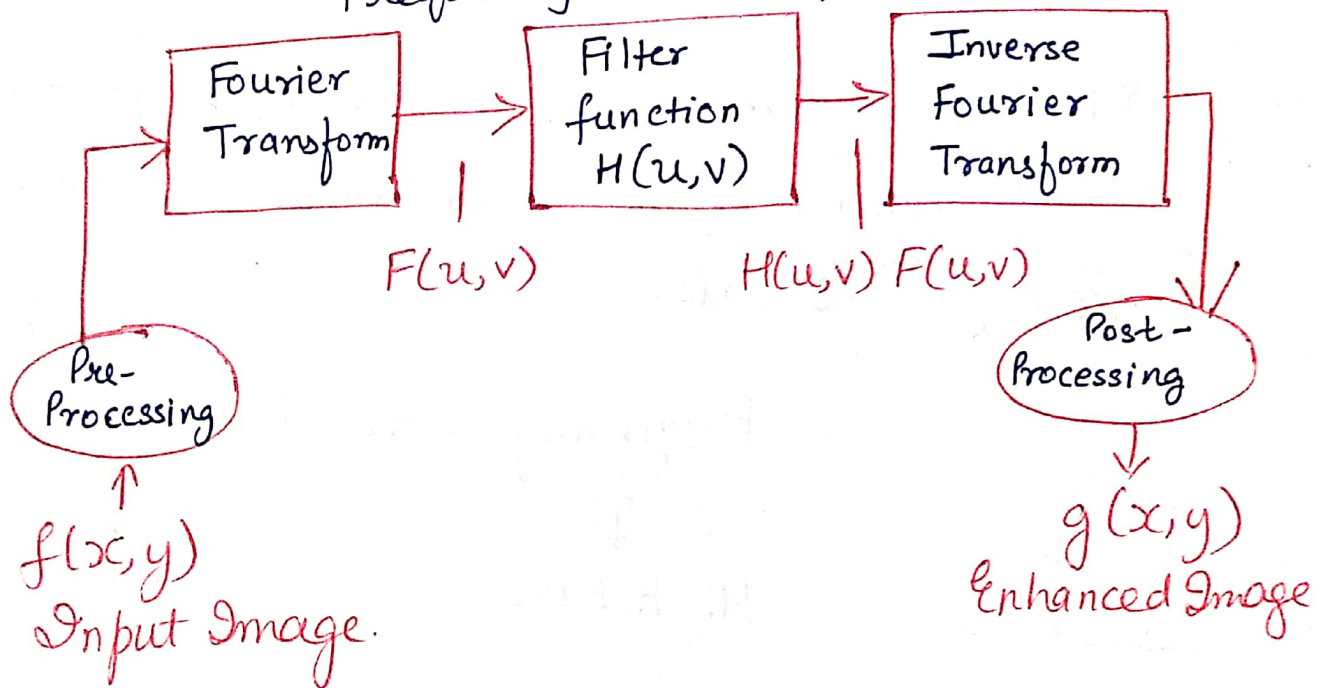 Fourier
Transform
Filter
function
H(u,v)
Inverse
Fourier
Transform
F(u,v)
H(u,v) F(u,v)
Pre-
Processing
Post-
Processing
f(x,y)
Input Image.
g(x,y)
Enhanced Image